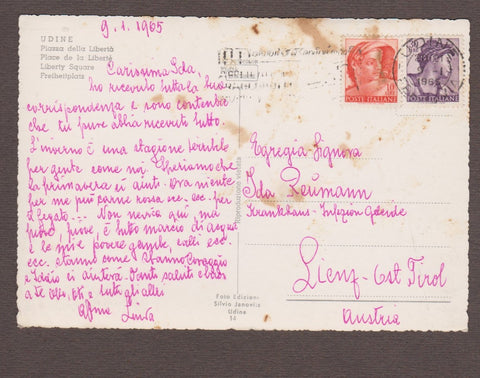 9.1.1965
UDINE
Piazza della Libertà
Place de la Liberté
Liberty Square
Freiheitplatz
Carissima Ida,
ho ricevuto tutta la tua
corrispondenza e sono contenta
che tu pure abbia ricevuto tutto.
L'inverno è una stagione terribile
per gente come noi. Speriamo che
la primavera ci aiuti. Ora niente
per me più carne rossa ecc. ecc. per
il fegato... Non nevica qui, ma
piove, piove, è tutto marcio di acqua
e le mie povere gambe,
ecc. stanno come Coraggio
e Iddio ci aiuterà. Tanti saluti e baci
a te e tutti gli altri
Aff.me Luisa
Egregia Signora
Ida Reumann
Krankenhaus - Infezion
Lienz - Ost Tirol
Austria
POSTE ITALIANE
10
POSTE ITALIANE
Riproduzione vietata
Foto Edizioni
Silvio Janovits
Udine
54